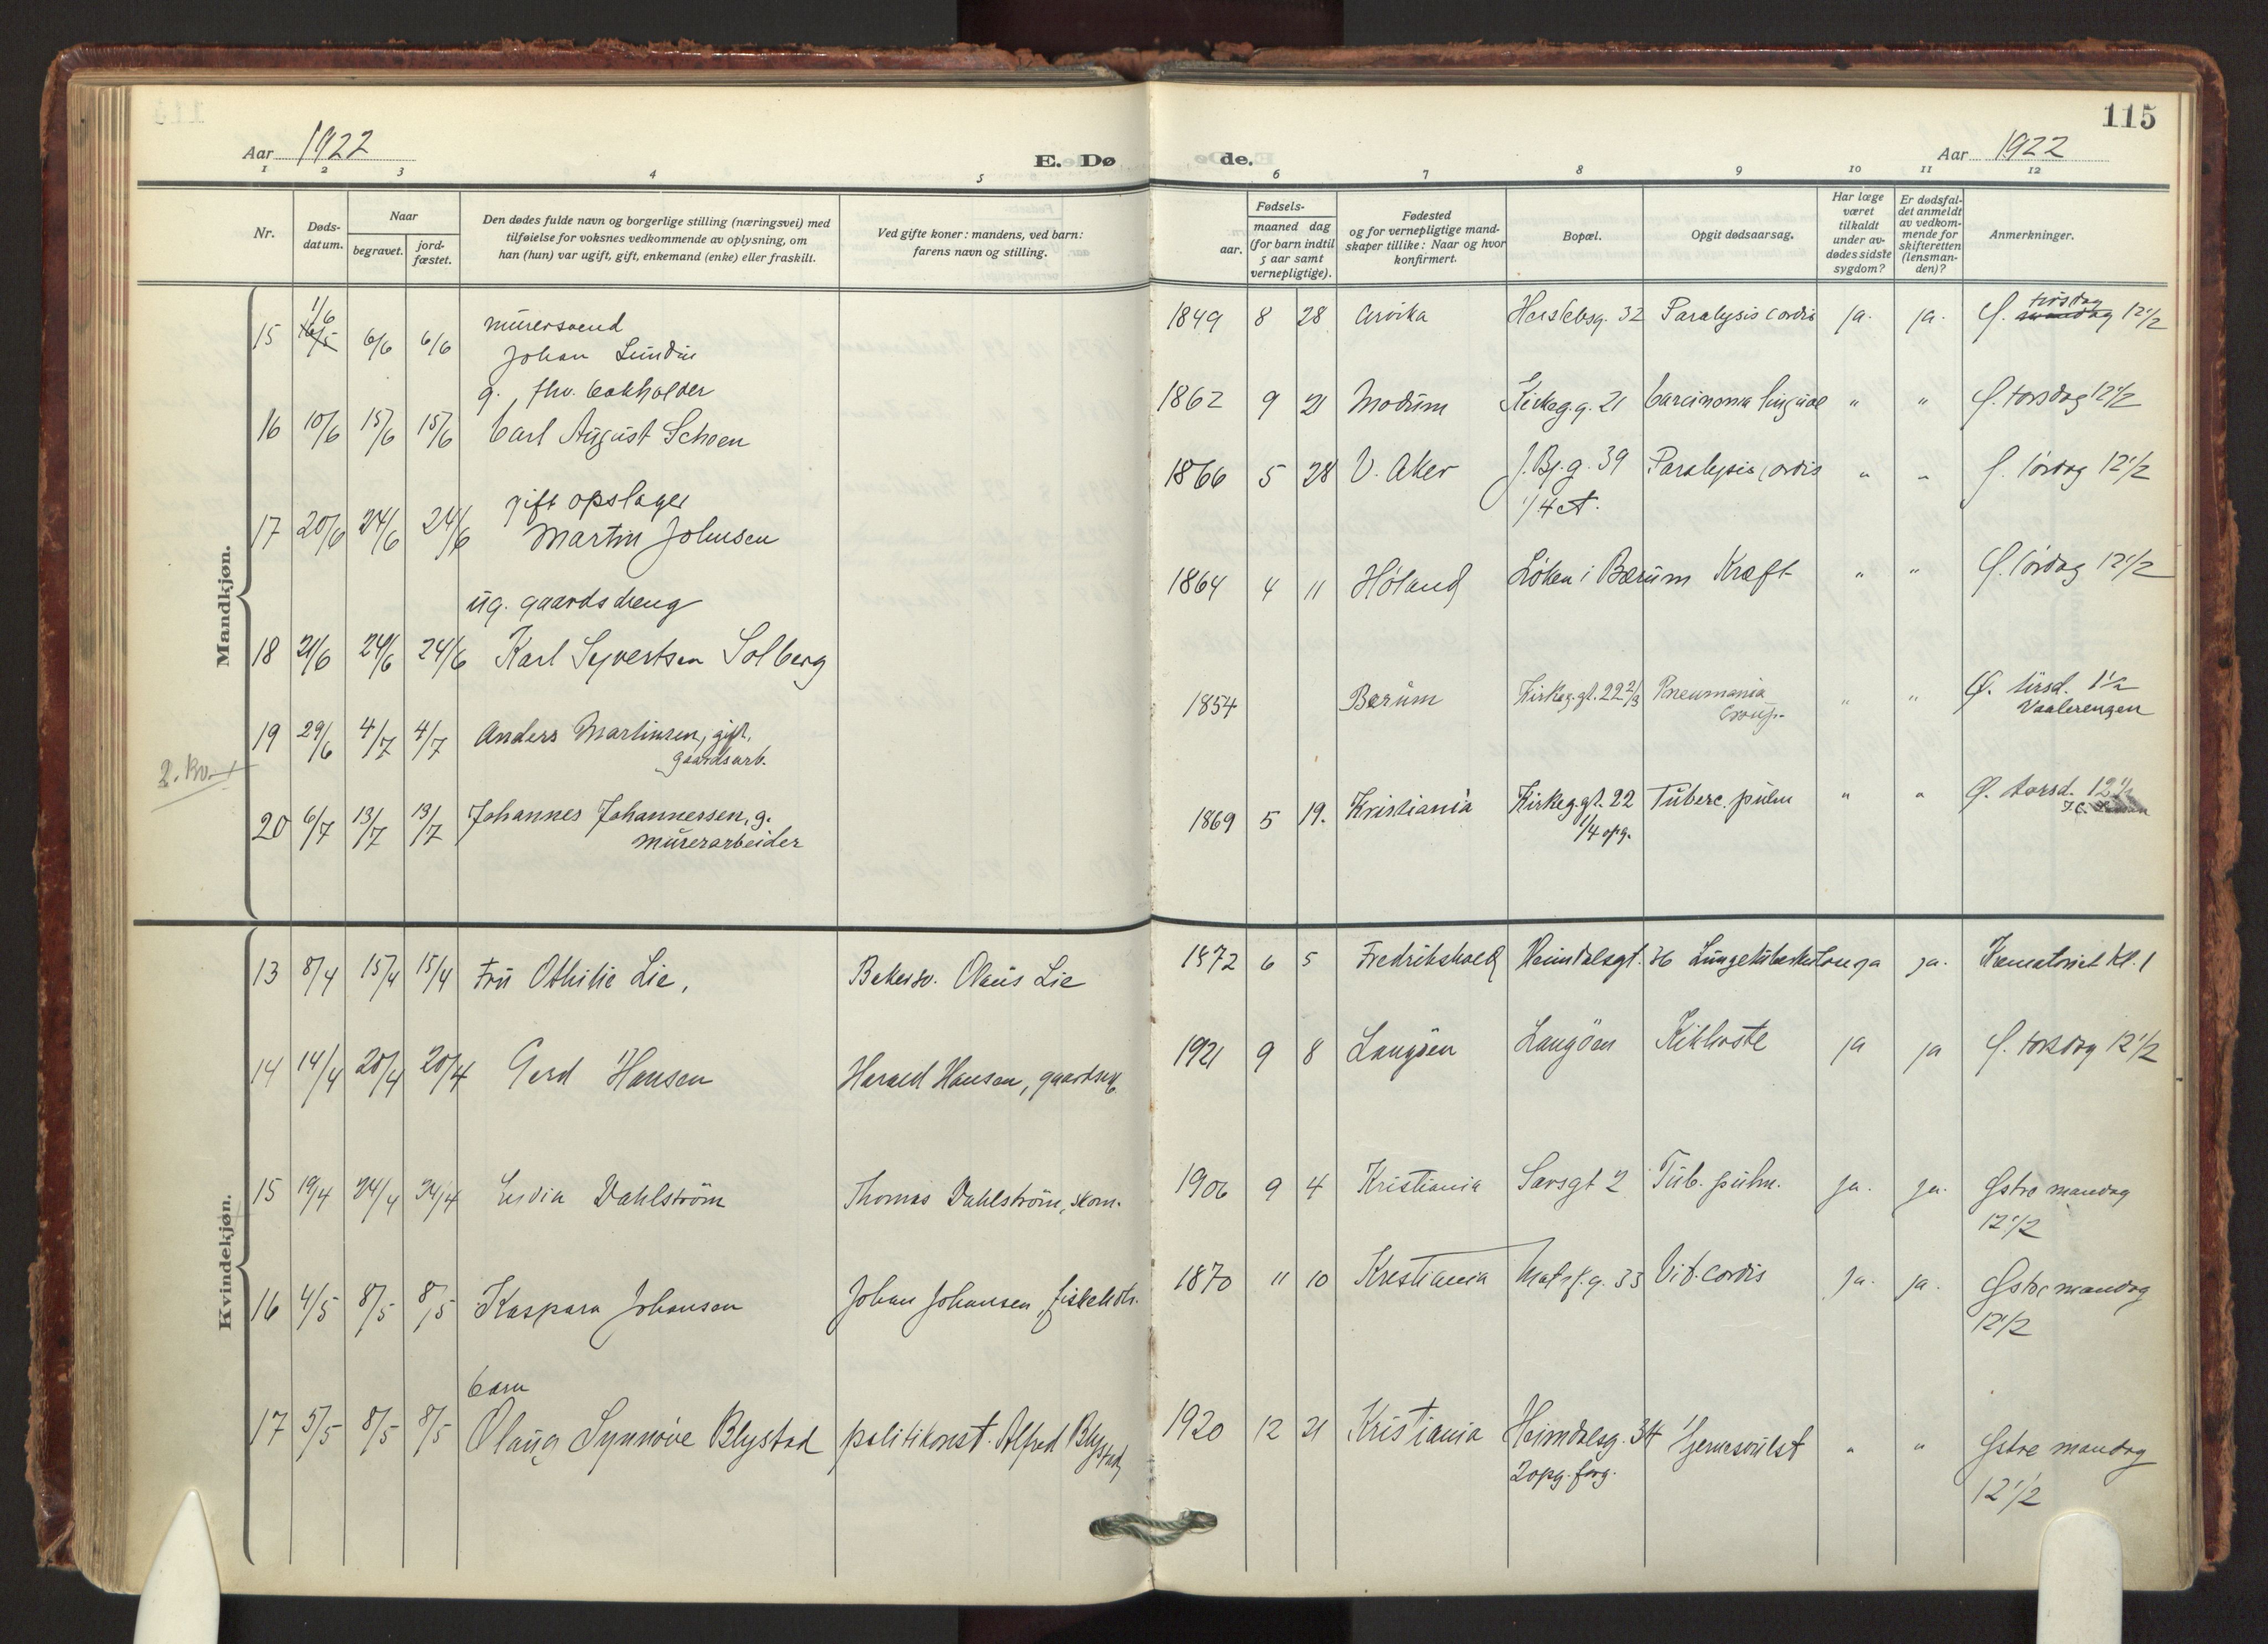 115
Aar 1922
E. Dø de.
Aar 1922
1 2 3 4 5 6 7 8 9 10 11 12
Nr.
Døds-datum.
Naar
begravet.
jord-fæstet.
Den dødes fulde navn og borgerlige stilling (næringsvei) med
tilføielse for voksnes vedkommende av oplysning, om
han (hun) var ugift, gift, enkemand (enke) eller fraskilt.
Ved gifte koner: mandens, ved barn:
farens navn og stilling.
Fødsels-
aar.
maaned dag
(for barn indtil
5 aar samt
vernepligtige).
Fødested
og for vernepligtige mand-
skaper tillike: Naar og hvor
konfirmert.
Bopæl.
Opgit dødsaarsag.
Har læge
været
tilkaldt
under av-
dødes sidste
sygdom?
Er dødsfal-
det anmeldt
av vedkom-
mende for
skifteretten
(lensman-
den)?
Anmerkninger.
Mandkjøn.
15 1/6 6/6 6/6 murersvend
Johan Lundin
1849 8 28 Arvika Herslebsg. 32 Paralysis cordis ja. ja. Ø. tirsdag 12 1/2
g. fhv. bokholder
16 10/6 15/6 15/6 Carl August Schoen
1862 9 21 Modum Kirkeg.g. 21 Carcinoma linguae " " Ø. torsdag 12 1/2
gift opslager
17 20/6 24/6 24/6 Martin Johnsen
1866 5 28 V. Aker J. Bj. g. 39 Paralysis cordis " " Ø. lördag 12 1/2
1/4 et.
ug. gaardsdreng
18 21/6 24/6 24/6 Karl Syvertsen Solberg
1864 4 11 Höland Löken i Bærum Kræft " " Ø. lördag 12 1/2
19 29/6 4/7 4/7 Anders Martinsen, gift.
gaardsarb.
1854 Bærum Kirkeg.gt. 22 2/3 Pneumania
Croup. " " Ø. tirsd. 1 1/2
Vaalerengen
2. kv.
20 6/7 13/7 13/7 Johannes Johannessen, g.
murerarbeider
1869 5 19. Kristiania Kirkeg.gt. 22 Tuberc. pulm " " Ø. torsd. 12 1/2
1/4 opg.
Kvindekjøn.
13 8/4 15/4 15/4 Fru Othilie Lie, Bakersv. Olaus Lie
1872 6 5 Fredrikshald Heimdalsgt. 36 Lungetuberkulose ja ja. Krematoriet Kl. 1
14 14/4 20/4 20/4 Gerd Hansen Harald Hansen, gaardsarb
1921 9 8 Langöen Langöen Kikhoste ja ja Ø. torsdag 12 1/2
15 19/4 24/4 24/4 Lydia Dahlström Thomas Dahlström, skom.
1906 9 4 Kristiania Sarsgt 2 Tub. pulm. ja. ja. Østre mandag
12 1/2
16 4/5 8/5 8/5 Kaspara Johansen Johan Johansen, fiskeh.
1870 11 10 Krestiania g. 33 Vit. cordis ja. ja. Østre mandag
12 1/2
barn
17 5/5 8/5 8/5 Olaug Synnöve Blystad politikonst. Alfred Blystad
1920 12 21 Kristiania Heimdalsg. 34 Hjernesvulst " " Østre mandag
2 opg. forg. 12 1/2